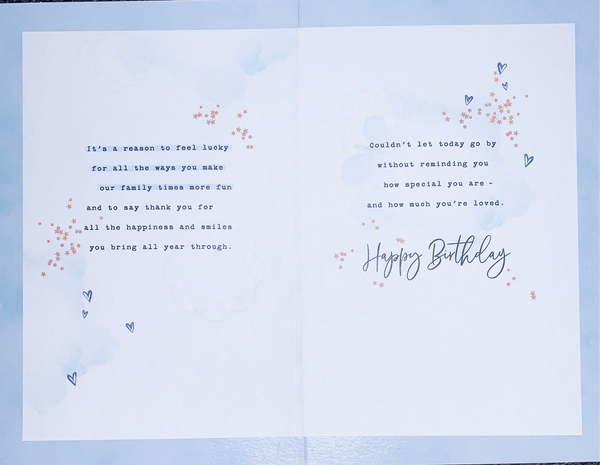 It's a reason to feel lucky
for all the ways you make
our family times more fun
and to say thank you for
all the happiness and smiles
you bring all year through.
Couldn't let today go by
without reminding you
how special you are -
and how much you're loved.
Happy Birthday